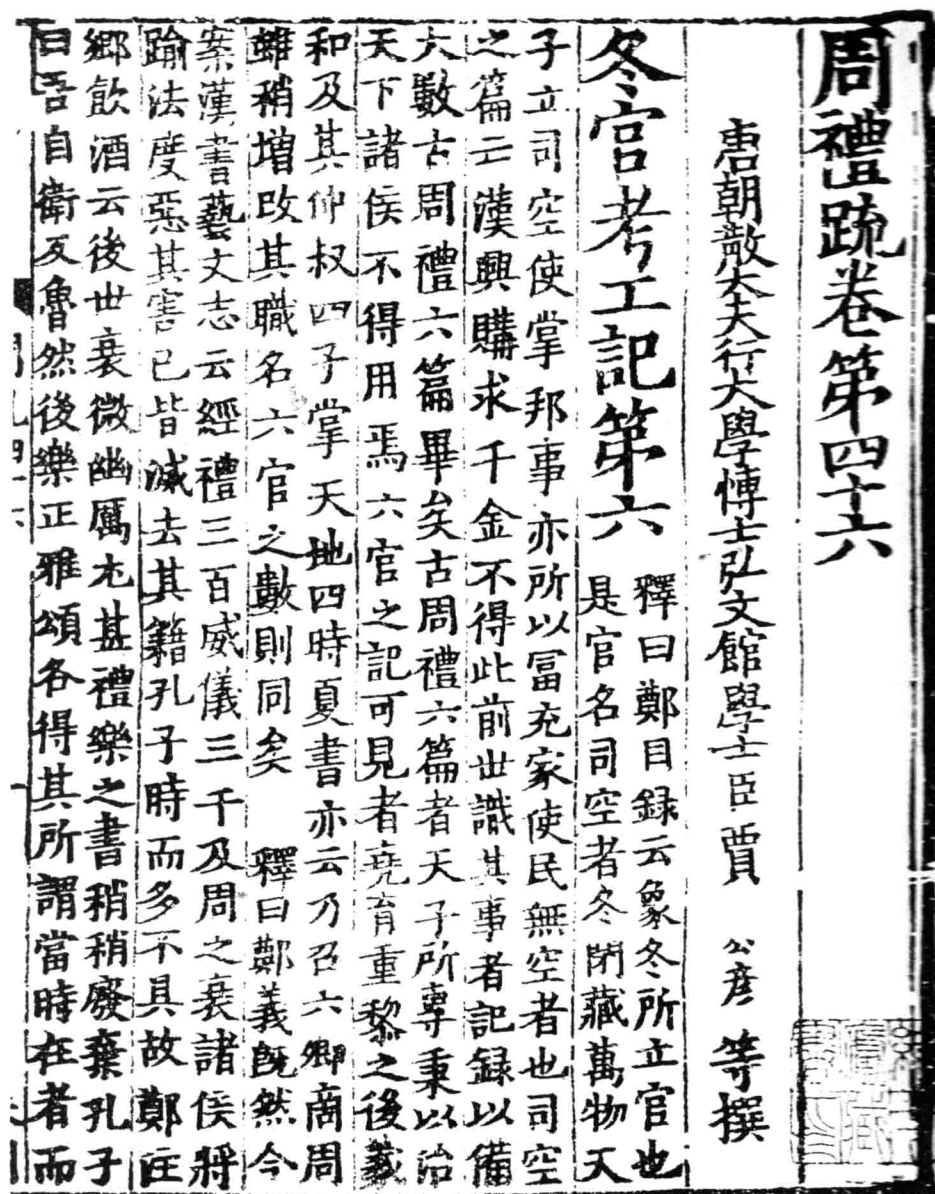 周禮疏卷第四十六
唐朝散大夫行大學博士弘文館學士臣賈公彦等撰
冬官考工記第六
釋曰鄭目録云象冬所立官也
是官名司空者冬閉藏萬物天
子立司空使掌邦事亦所以冨充家使民無空者也司空
之篇亡漢興購求千金不得此前世識其事者記録以備
大數古周禮六篇畢矣古周禮六篇者天子所專秉以治
天下諸侯不得用焉六官之記可見者堯育重黎之後羲
和及其仲叔四子掌天地四時夏書亦云乃召六卿商周
雖稍増改其職名六官之數則同矣 釋曰鄭義旣然今
案漢書藝文志云經禮三百威儀三千及周之衰諸侯將
踰法度惡其害已皆滅去其籍孔子時而多不具故鄭注
郷飲酒云後世衰微幽厲尤甚禮樂之書稍稍廢棄孔子
曰吾自衛反魯然後樂正雅頌各得其所謂當時在者而